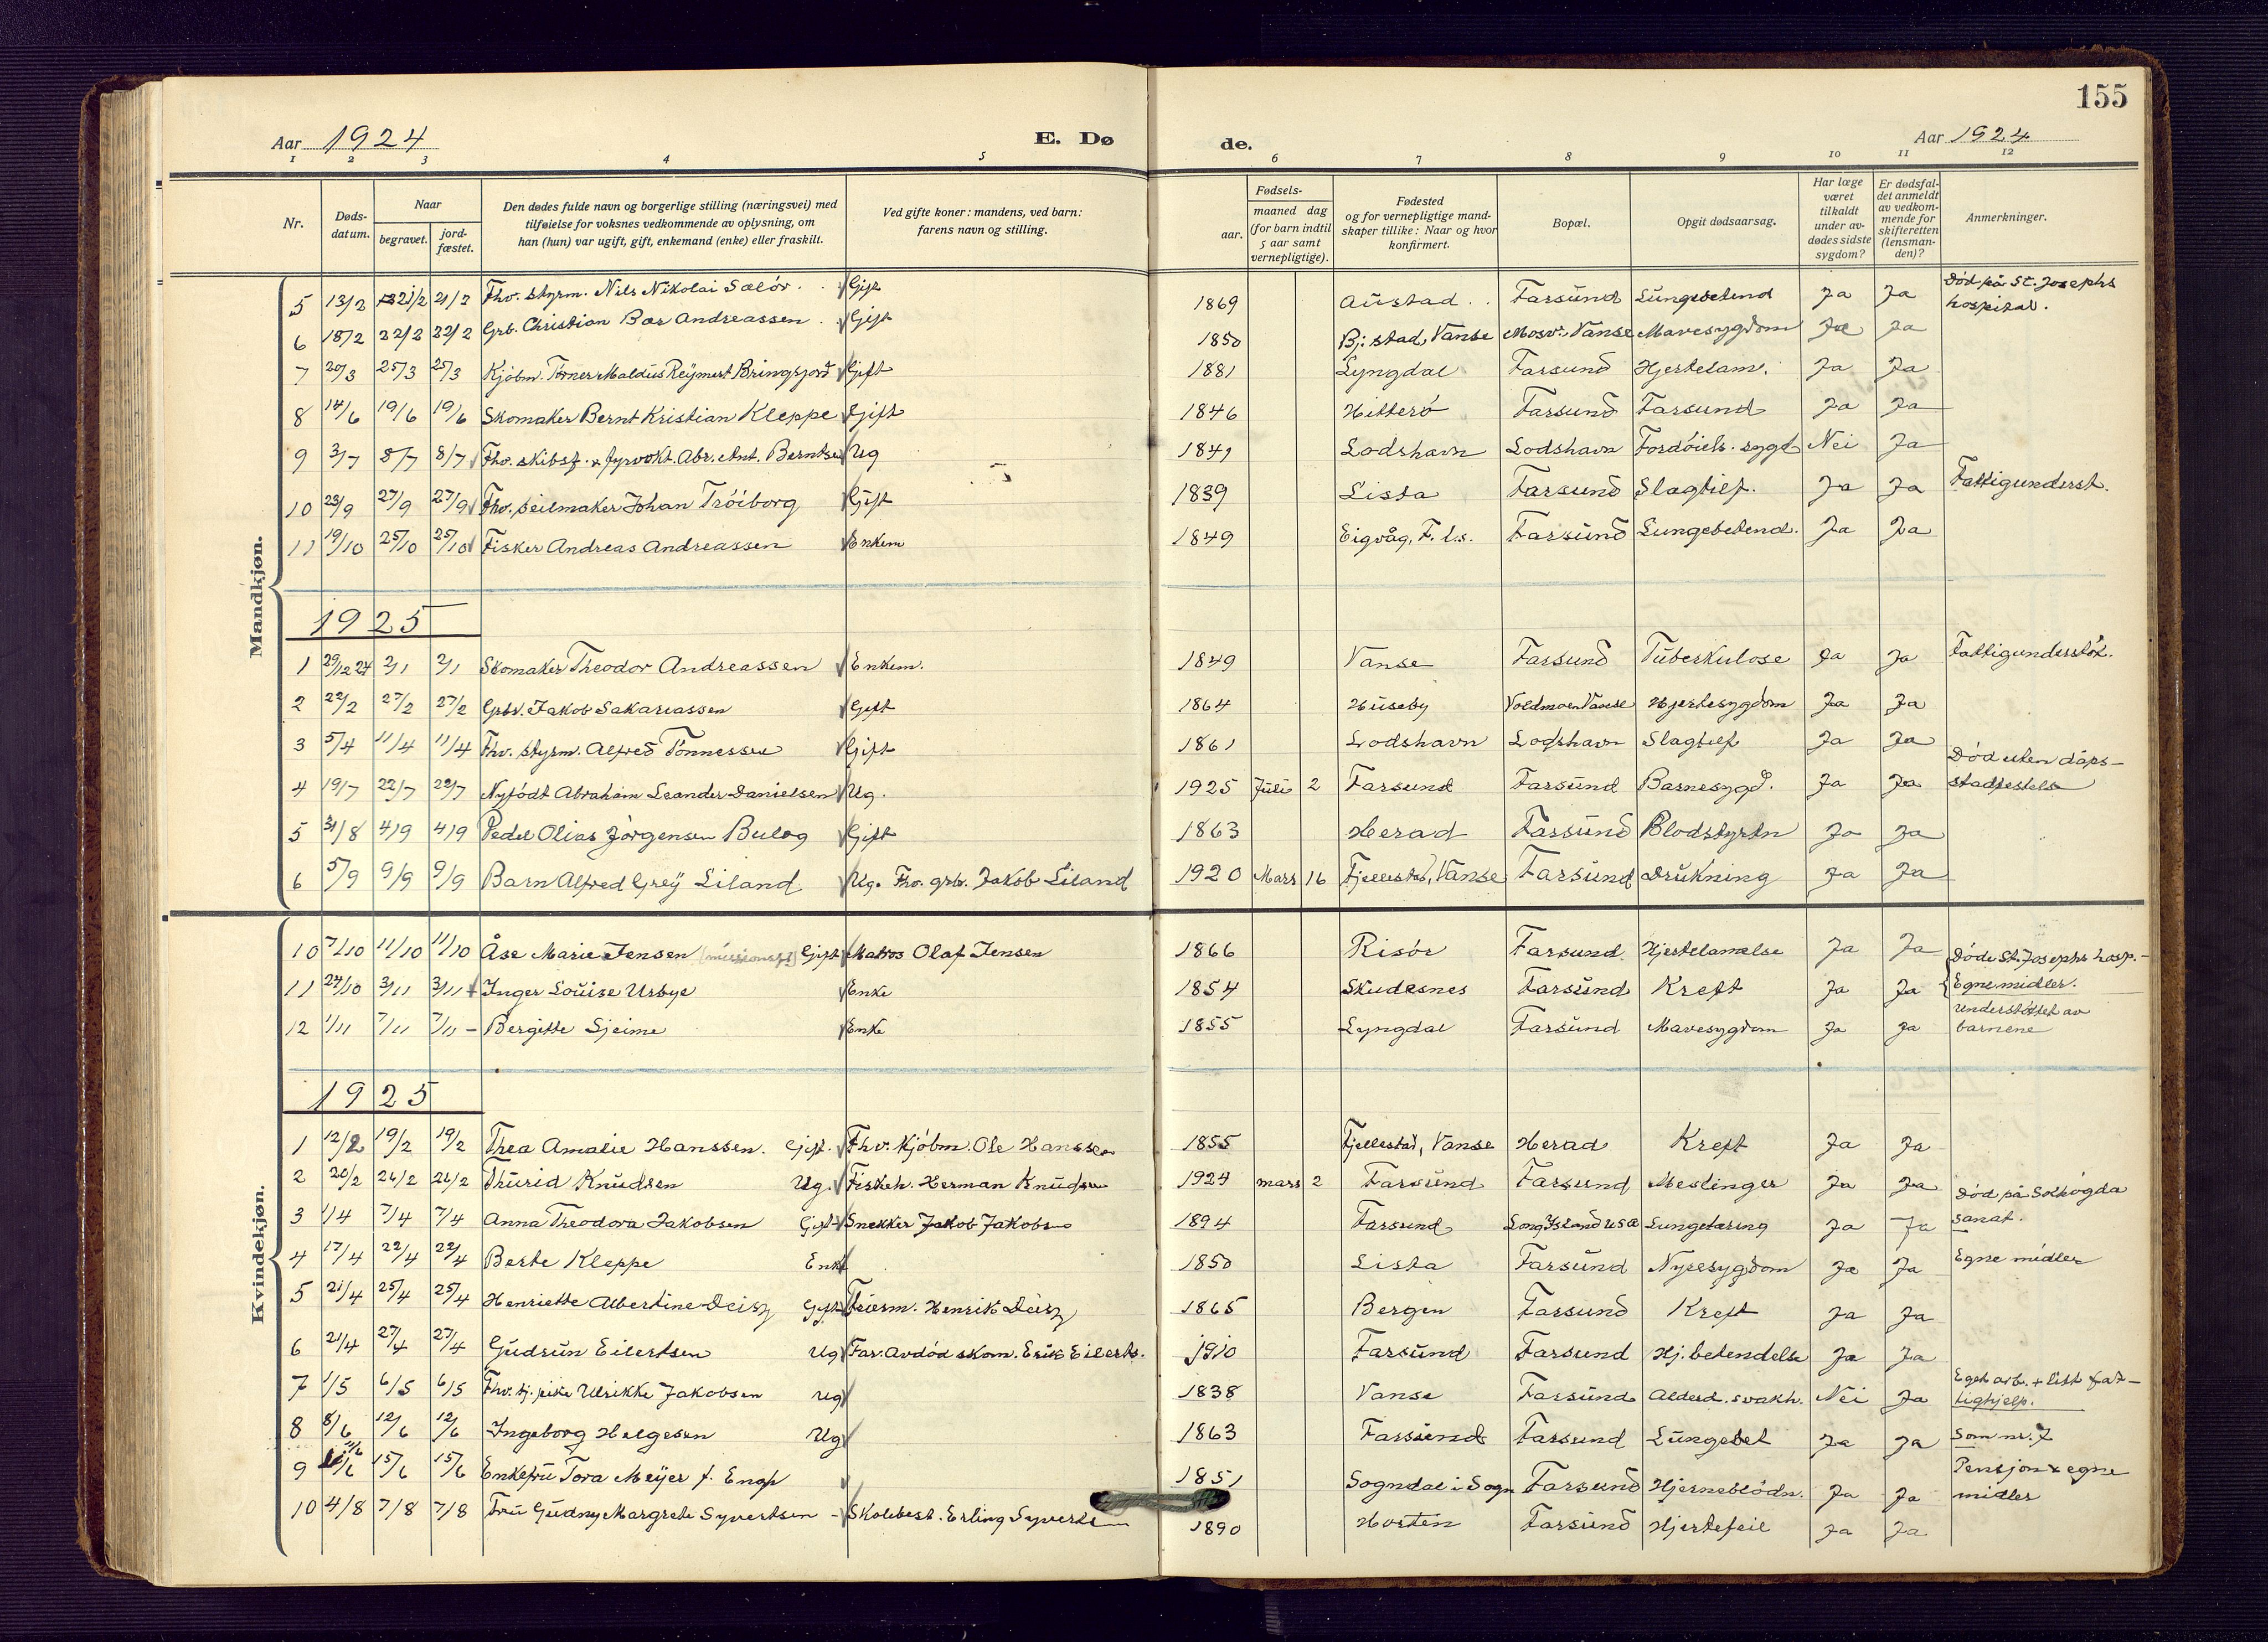 155
Aar 1924 E. Dø de. Aar 1924
1 2 3 4 5 6 7 8 9 10 11 12
Nr. Døds-datum. Naar begravet. jord-fæstet. Den dødes fulde navn og borgerlige stilling (næringsvei) med tilføielse for voksnes vedkommende av oplysning, om han (hun) var ugift, gift, enkemand (enke) eller fraskilt. Ved gifte koner: mandens, ved barn: farens navn og stilling. Fødsels- aar. maaned dag (for barn indtil 5 aar samt vernepligtige). Fødested og for vernepligtige mand-skaper tillike: Naar og hvor konfirmert. Bopæl. Opgit dødsaarsag. Har læge været tilkaldt under av-dødes sidste sygdom? Er dødsfal-det anmeldt av vedkom-mende for skifteretten (lensman-den)? Anmerkninger.
Mandkjøn.
5 13/2 21/2 21/2 Fhv. styrm. Nils Nikolai Salór. Gift 1869 Austad Farsund Lungebetend Ja Ja Død på St. Josephs hospital.
6 18/2 22/2 22/2 Grb. Christian Bar Andreassen Gift 1850 Bj:stad, Vanse Mosv., Vanse Mavesygdom Ja Ja
7 20/3 25/3 25/3 Kjóbm. Tørner Maldus Reymert Bringsjord Gift 1881 Lyngdal Farsund Hjertelam. Ja Ja
8 14/6 19/6 19/6 Skomaker Bernt Kristian Kleppe Gift 1846 Hitteró Farsund Farsund Ja Ja
9 3/7 8/7 8/7 Fhv. skibsf. & fyrvokt. Abr. Ant. Berntsen Ug 1841 Lodshavn Lodshavn Fordóiels. sygd Nei Ja
10 23/9 27/9 27/9 Fhv. seilmaker Johan Tróiborg Gift 1839 Lista Farsund Slagtilf. Ja Ja Fattigunderst.
11 19/10 25/10 25/10 Fisker Andreas Andreassen Enkem 1849 Eigvåg, F. l.s. Farsund Lungebetend. Ja Ja
1925
1 29/12 24 2/1 2/1 Skomaker Theodor Andreassen Enkem. 1849 Vanse Farsund Tuberkulose Ja Ja Fattigunderstót.
2 22/2 27/2 27/2 Grbr. Jakob Sakariassen Gift 1864 Huseby Voldmoen Vanse Hjertesygdom Ja Ja
3 5/4 11/4 11/4 Fhv. styrm. Alfred Tónnessen Gift 1861 Lodshavn Lodshavn Slagtilf Ja Ja
4 19/7 22/7 22/7 Nyfódt Abraham Leander Danielsen Ug. 1925 Juli 2 Farsund Farsund Barnesygd. Ja Ja Død uten dåps-stadfestelse
5 31/8 4/9 4/9 Pedel Olias Jórgensen Buløg Gift 1863 Herad Farsund Blodstyrtn Ja Ja
6 5/9 9/9 9/9 Barn Alfred Grey Liland Ug. Fhv. grbr. Jakob Liland 1920 Mars 16 Fjellestad, Vanse Farsund Drukning Ja Ja
Kvindekjøn.
10 7/10 11/10 11/10 Åse Marie Jensen Gift Matros Olaf Jensen 1866 Risór Farsund Hjertelamelse Ja Ja Døde St. Josephs hosp.-
11 27/10 3/11 3/11 Inger Louise Urbye Enke 1854 Skudesnes Farsund Kreft Ja Ja Egne midler.
12 1/11 7/11 7/11 - Bergitte Sjeime Enke 1855 Lyngdal Farsund Mavesygdom Ja Ja Understøttet av barnene
1925
1 12/2 19/2 19/2 Thea Amalie Hanssen. Gift. Fhv. Kjóbm. Ole Hanssen 1855 Fjellestad, Vanse Herad Kreft Ja Ja
2 20/2 26/2 26/2 Thurid Knudsen Ug. Fiskeh. Herman Knudsen 1924 mars 2 Farsund Farsund Meslinger Ja Ja
3 1/4 7/4 7/4 Anna Theodora Jakobsen Gift Snekker Jakob Jakobsen 1894 Farsund Long Island USA Lungetæring Ja Ja Død på Solhøgda sanat.
4 17/4 22/4 22/4 Berte Kleppe Enke 1850 Lista Farsund Nyresygdom Ja Ja Egne midler
5 21/4 25/4 25/4 Henriette Albertine Deisz Gift Feierm. Henrik Deisz 1865 Bergen Farsund Kreft Ja Ja
6 21/4 27/4 27/4 Gudrun Eilertsen Ug Far: Avdód skom. Erik Eilerts. 1910 Farsund Farsund Hj. betendelse Ja Ja
7 1/5 6/5 6/5 Fhv. tj. pike Ulrikke Jakobsen Ug 1838 Vanse Farsund Alderd. svakh. Nei Ja Eget arb. + litt fat-tighjelp.
8 8/6 12/6 12/6 Ingeborg Helgesen Ug 1863 Farsund Farsund Lungebet Ja Ja Som nr. 7
9 11/6 15/6 15/6 Enkefru Tora Meyer f. Engh 1851 Sogndal i Sogn Farsund Hjerneblódn. Ja Ja Pensjon & egne midler
10 4/8 7/8 7/8 Fru Gudny Margrete Syvertsen - Skolebest. Erling Syvertsen 1890 Horten Farsund Hjertefeil Ja Ja